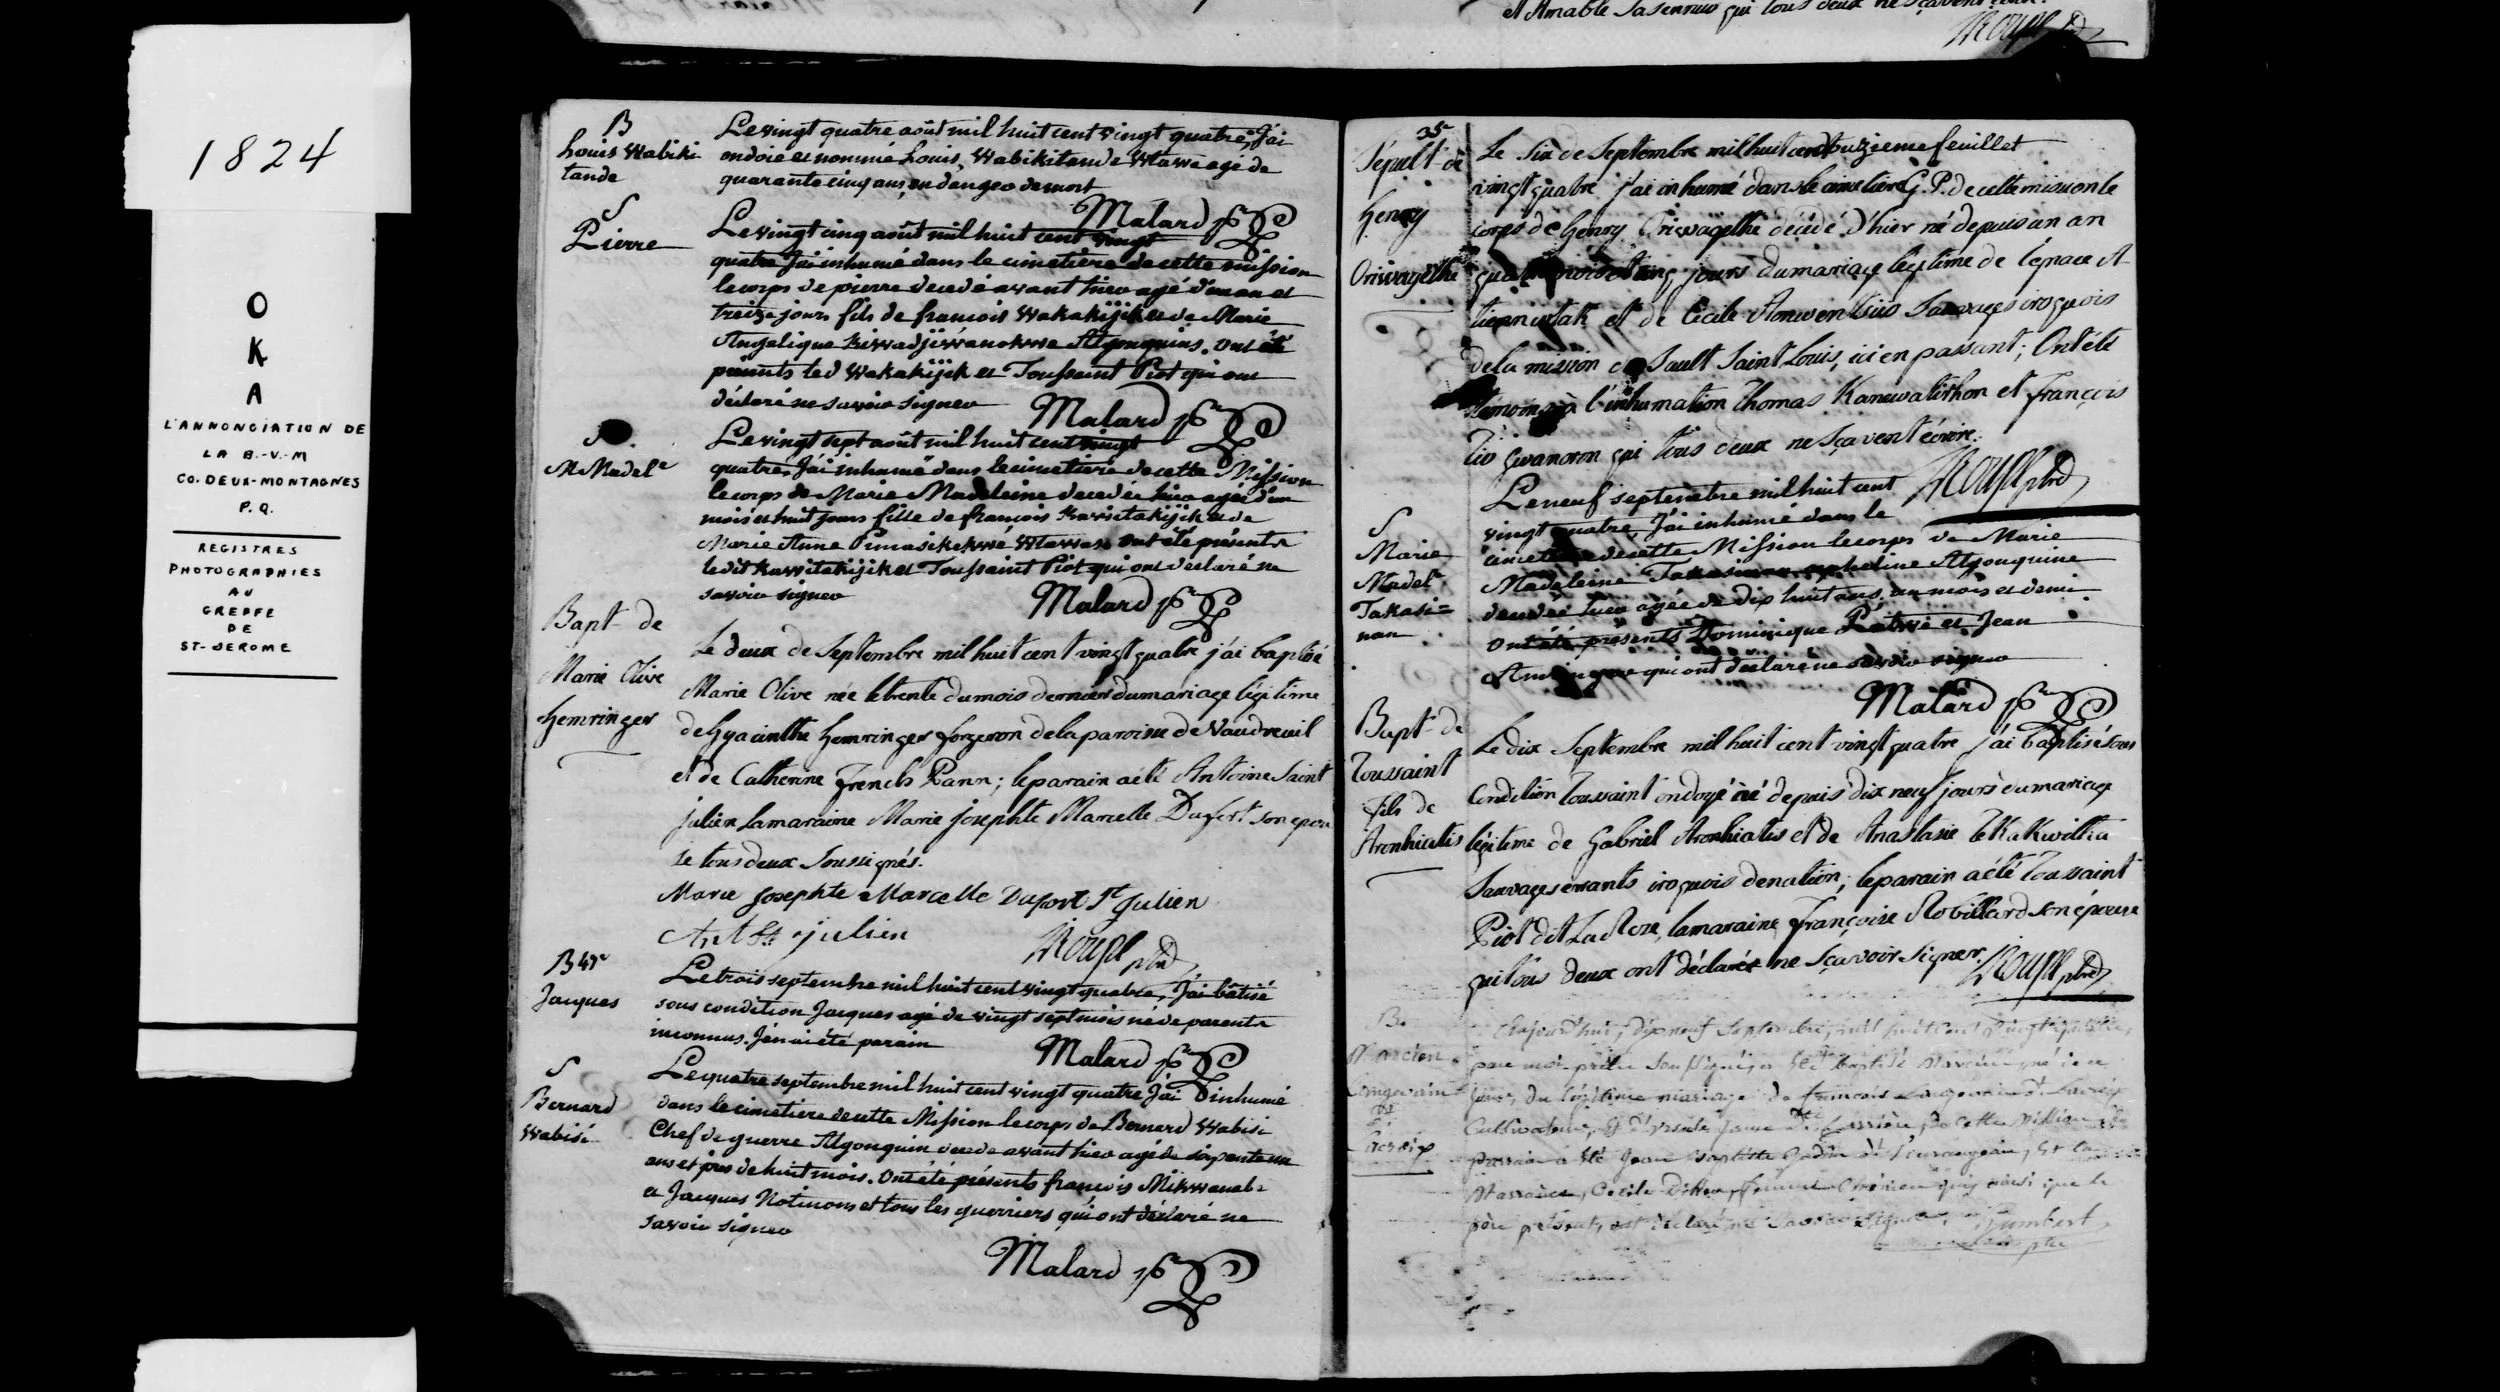 et Amable Sasennio qui tous deux ne sçavent écrire.
1824
O
K
A
L'ANNONCIATION DE
LA B.-V.-M
CO. DEUX-MONTAGNES
P.Q.
REGISTRES
PHOTOGRAPHIES
AU
GREFFE
DE
ST-JEROME
B
Louis Wabiki
tande
Le vingt quatre août mil huit cent vingt quatre, J'ai
ondoié et nommé Louis, Wabikitande Wtawa agé de
quarante cinq ans, en danger de mort
Malard ptre
S
Pierre
Le vingt cinq août mil huit cent vingt
quatre J'ai inhumé dans le cimetiere de cette mission
le corps de pierre decedé avant hier agé d'un an et
treize jours fils de francois Wakakijik et de Marie
Angelique Kiwadjiwanokwe Algonquins. Ont été
présents led Wakakijik et Toussaint Piot qui ont
déclaré ne savoir signer
Malard ptre
S
M. Madele
Le vingt sept août mil huit cent vingt
quatre, J'ai inhumé dans le cimetiere de cette Mission
le corps de Marie Madeleine decedée hier agée d'un
mois et huit jours fille de francois Kawitakijik et de
Marie Anne Pimasikekwé Wtawas. Ont été présents
ledit Kawitakijik et Toussaint Piot qui ont declaré ne
savoir signer
Malard ptre
Bapt de
Marie Olive
hemringer
Le deux de Septembre mil huit cent vingt quatre j'ai baptisé
Marie Olive née le trente du mois dernier du mariage légitime
de hyacinthe hemringer forgeron de la paroisse de Vaudreuil
et de Catherine french Pann; le parain a été Antoine Saint
julien la maraine Marie josephte Marcelle Dufort son epou
se tous deux Soussignés.
Marie Josephte Marcelle Dufort St Julien
Ant St julien
Roupe ptre
B 41e
Jacques
Le trois septembre mil huit cent vingt quatre, J'ai bâtisé
sous condition Jacques agé de vingt sept mois né de parents
inconnus. J'en ai été parain
Malard ptre
S
Bernard
Wabisi
Le quatre septembre mil huit cent vingt quatre J'ai inhumé
dans le cimetiere de cette Mission le corps de Bernard Wabisi
Chef de guerre Algonquin decedé avant hier agé de soixante un
ans et près de huit mois. Ont été présents francois
et Jacques Notinons et tous les guerriers qui ont déclaré ne
savoir signer
Malard ptre
35e
Sépult de
henry
Oriwagethe
Le Six de Septembre mil huit cent onzieme feuillet
vingt quatre j'ai inhumé dans le cimetiere G. P. de cette mission le
corps de henry Oriwagethe décédé d'hier né depuis un an
quatre mois et cinq jours du mariage légitime de ignace
et de Cécile Sauvages iroquois
de la mission du Sault Saint Louis, ici en passant; Ont été
témoins à l'inhumation Thomas Kanewatithon et françois
qui tous deux ne sçavent écrire.
Roupe ptre
S
Marie
Madel
Takasi=
nan
Le neuf septembre mil huit cent
vingt quatre, J'ai inhumé dans le
cimetiere de cette Mission le corps de Marie
Madeleine Takasinan orpheline Algonquine
decedée hier agée de Dix huit ans, un mois et demi.
Ont été présents Dominique et Jean
qui ont declaré ne savoir signer
Malard ptre
Bapt de
Toussaint
fils de
Aronhiatis
Le dix Septembre mil huit cent vingt quatre j'ai baptisé sous
Condition Toussaint ondoyé né depuis dix neuf jours du mariage
légitime de Gabriel Aronhiatis et de Anastasie teKaKwitha
Sauvages errants iroquois de nation; le parain a été Toussaint
Piot dit LaRose, la maraine françoise Robillard son épouse
qui tous deux ont déclaré ne Sçavoir Signer.
Roupe ptre
B.
Narcisse
Langevain
dit
Lacroix
Aujourd'hui, dix neuf Septembre, mil huit cent vingt quatre,
par moi prêtre Soussigné, a été baptisé Narcisse né ce
jour, du légitime mariage de françois Langevain dt Lacroix
Cultivateur, et d'Ursule de cette Mission Le
parrain a été Jean Baptiste et la
Marraine, Cécile qui ainsi que le
père présent, ont déclaré ne Savoir Signer.
Humbert
ptre